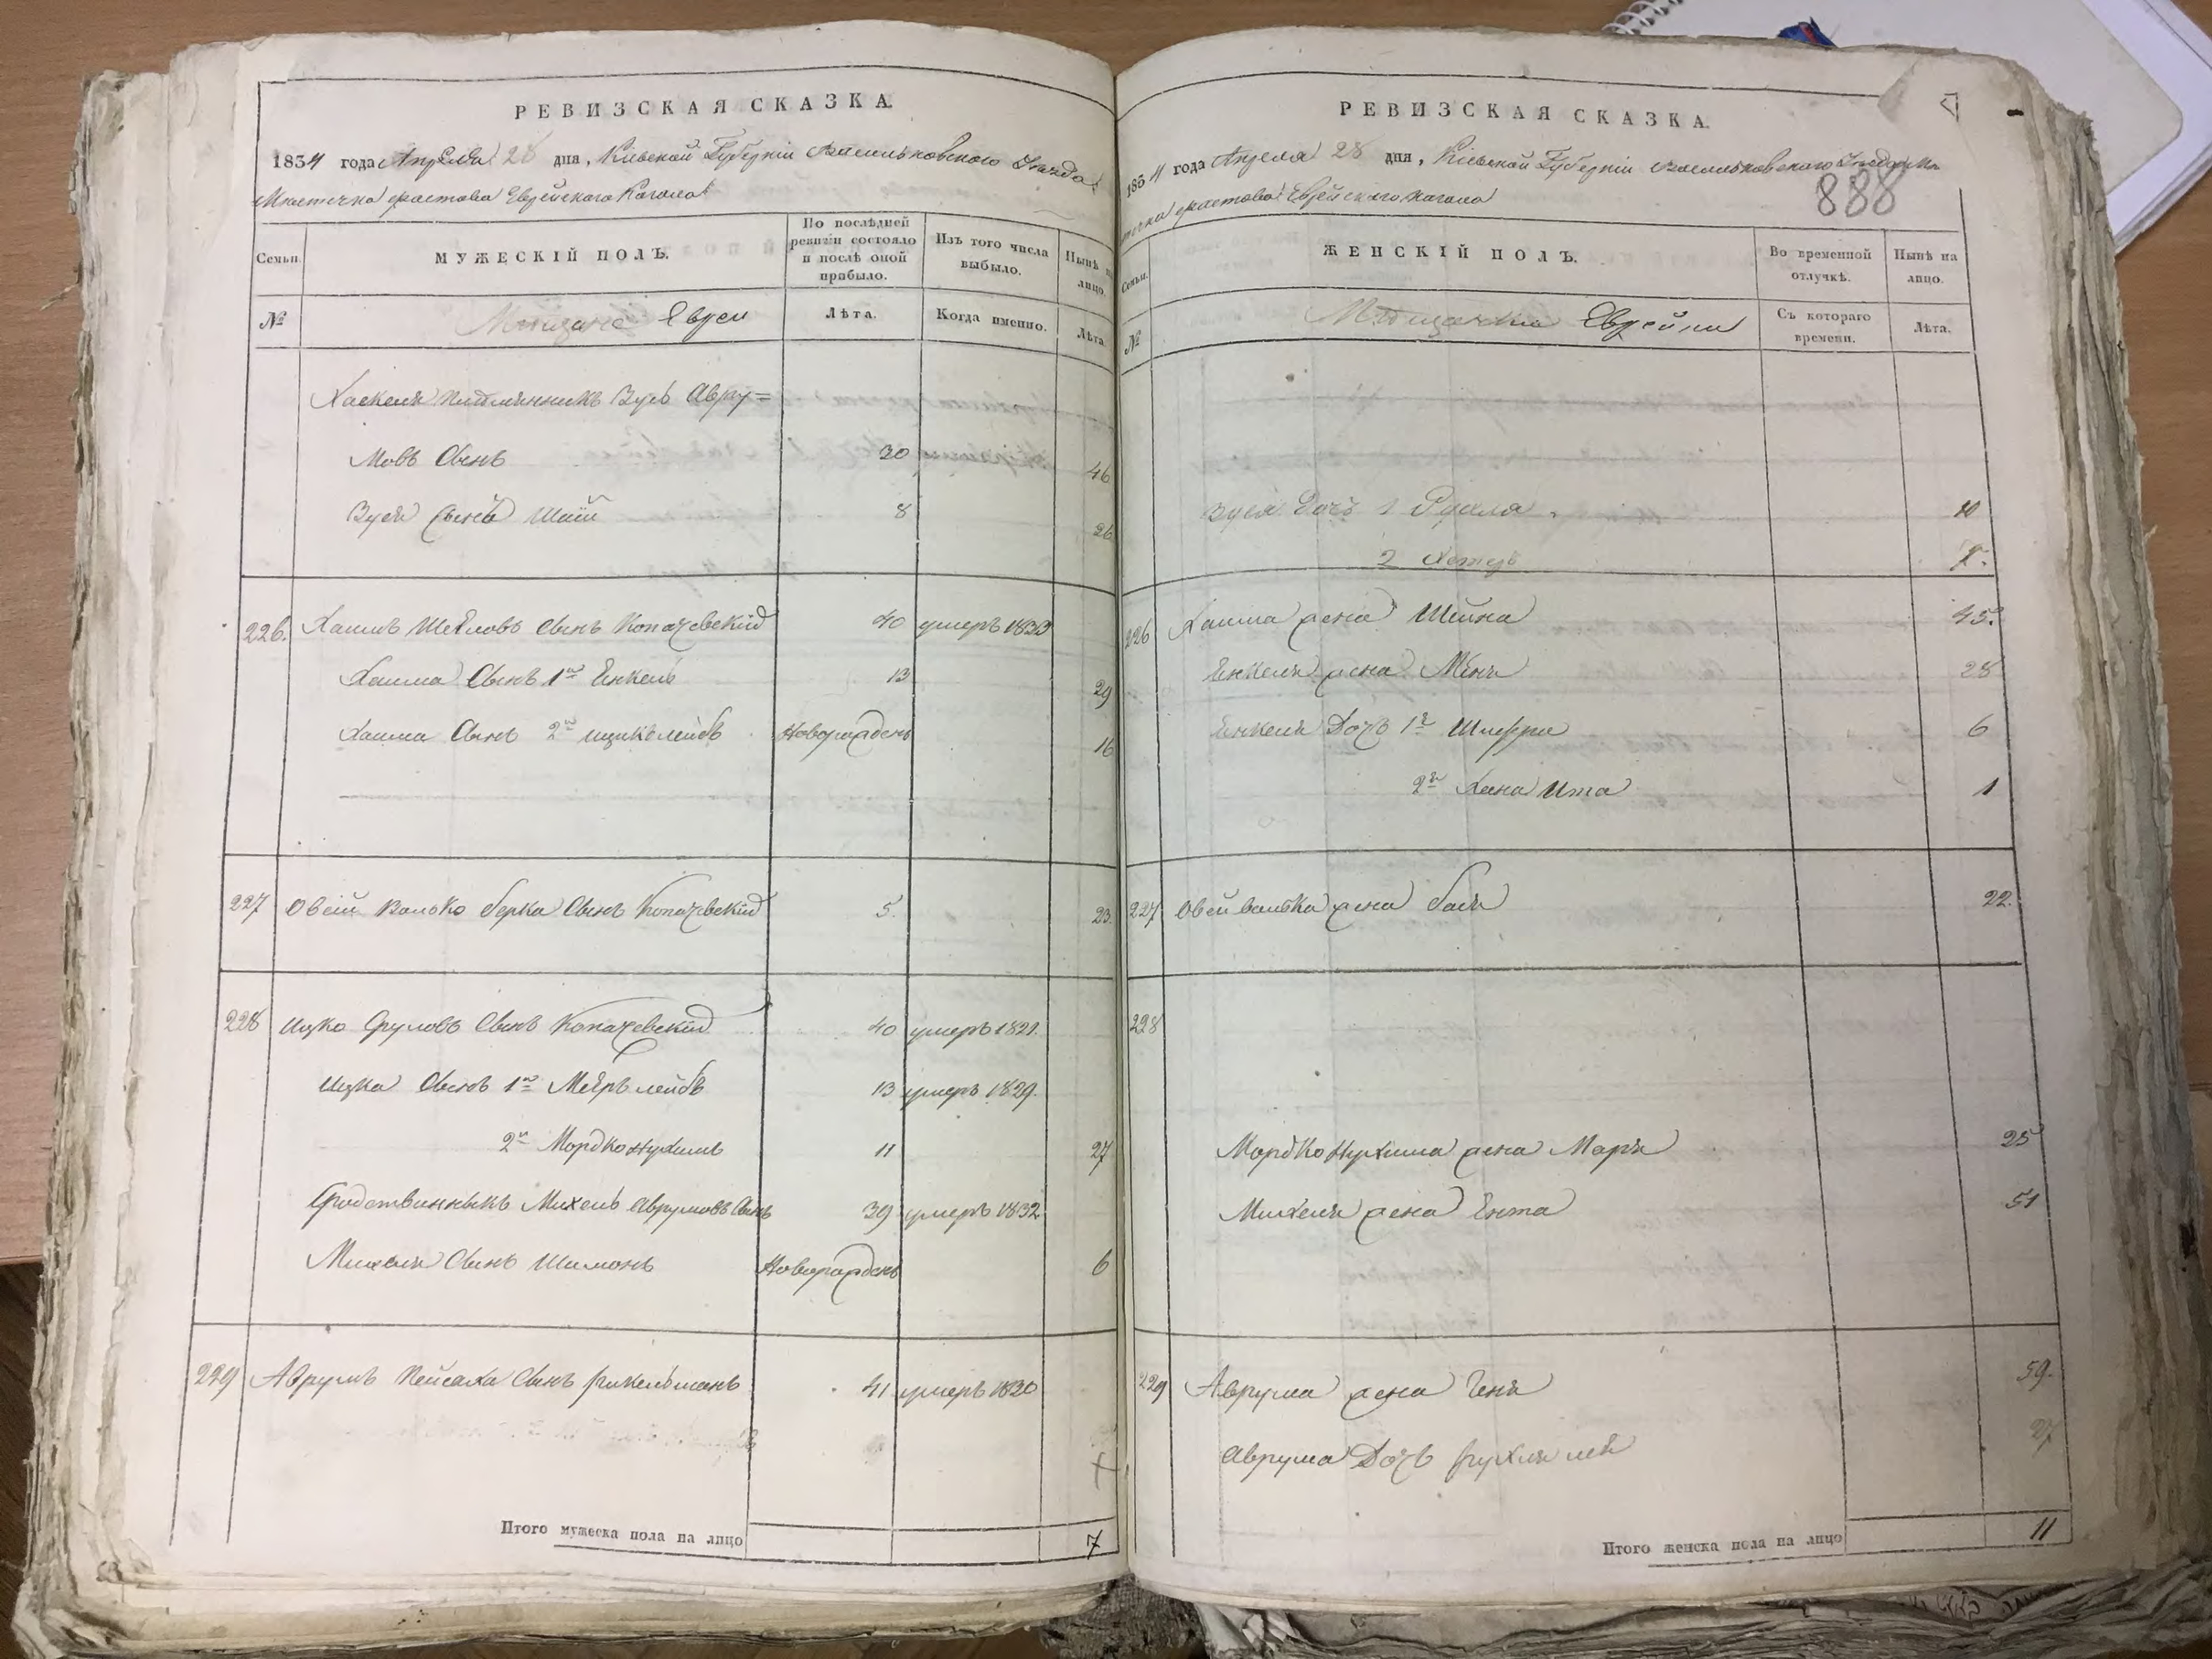 РЕВИЗСКАЯ СКАЗКА.
1834 года Апреля 28 дня, Кіевской Губерніи Васильковского Уезда
Местечка Фастова Еврейского Кагала
Семьи.
МУЖЕСКІЙ ПОЛЪ.
По послѣдней ревизіи состояло и послѣ оной прибыло.
Изъ того числа выбыло.
Нынѣ на лицо.
№
Мещане Евреи
Лѣта.
Когда именно.
Лѣта
Хаскеля племянникъ Зусь Авру=
мовъ Сынъ 30 46
Зуся Сынъ Шаіи 8 26
226. Хаимъ Шейловъ Сынъ Копачевскій 40 умеръ 1833
Хаима Сынъ 1й Енкель 13 29
Хаима Сынъ 2й Ицикълейбъ Новорожденъ 16
227 Овсій Волько Берка Сынъ Копачевскій 5. 23.
228 Ицко Сруловъ Сынъ Копачевскій 40 умеръ 1821.
Ицка Сынъ 1й Меерълейбъ 13 умеръ 1829.
2й Мордко Нухимъ 11 27
Сродственникъ Михель Аврумовъ Сынъ 39 умеръ 1832
Михеля Сынъ Шимонъ Новорожденъ 6
229 Аврумъ Пейсаха Сынъ Фикельманъ 41 умеръ 1830
Итого мужеска пола на лицо 7
РЕВИЗСКАЯ СКАЗКА.
1834 года Апреля 28 дня, Кіевской Губерніи Васильковского Уезда Ме
стечка Фастова Еврейского Кагала
888
Семьи.
ЖЕНСКІЙ ПОЛЪ.
Во временной отлучкѣ.
Нынѣ на лицо.
№
Мещанки Еврейки
Съ котораго времени.
Лѣта.
Зуся Дочь 1 Рухля 10
2
226 Хаима жена Шейна 45.
Енкеля жена Меня 28
Енкеля Дочь 1я Шифра 6
2я Хана Ита 1
227 Овсей Волька жена Бася 22.
228
Мордко Нухима жена Маря 25
Михеля жена Ента 51
229 Аврума жена Геня 59.
Аврума Дочь Рухля Лея 27
Итого женска пола на лицо 11